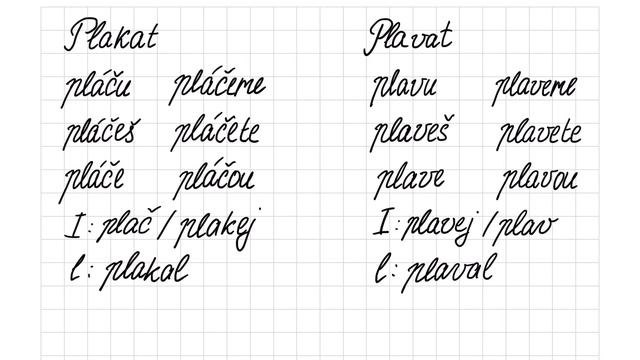 Plakat
pláču pláčeme
pláčeš pláčete
pláče pláčou
I: plač / plakej
l: plakal
Plavat
plavu plaveme
plaveš plavete
plave plavou
I: plavej / plav
l: plaval